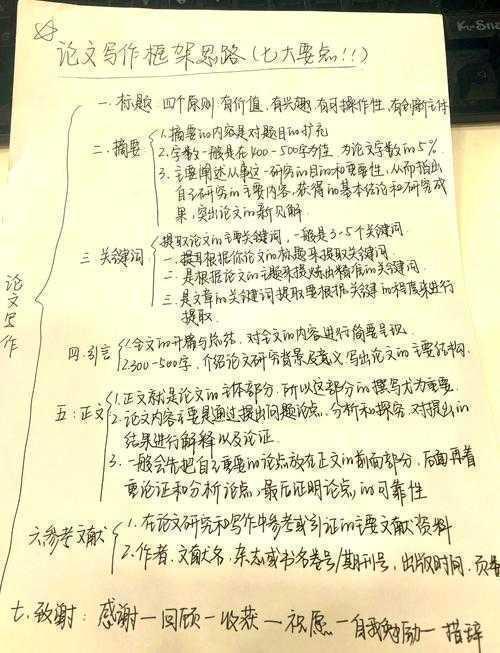 论文写作框架思路(七大要点!!!)
论文写作
一.标题 四个原则:有价值,有兴趣,有可操作性,有创新主体
二.摘要
1.摘要的内容是对题目的扩充
2.字数一般是在400-500字为佳,为论文字数的5%.
3.主要阐述从事这一研究的目的和重要性,从而指出
自己研究的主要内容,获得的基本结论和研究成
果,突出论文的新见解.
三 关键词
提取论文的主要关键词,一般是3-5个关键词.
一.提取根据你论文的标题来提取关键词.
二.是根据论文的主题来提炼出精准的关键词.
三.是文章的关键词提取要根据关键的程度来进行
提取.
四.引言
1.全文的开篇与总结,对全文的内容进行简要呈现.
2.300-500字,介绍论文研究背景及意义,写出论文的主要结构.
五:正文
1.正文就是论文的主体部分,所以这部分的撰写尤为重要.
2.论文内容主要是通过提出问题论点,分析和探究,对提出的
结果进行解释以及论证.
3.一般会先把自己主要的论点放在正文的前面部分,后面再着
重论证和分析论点,最后证明论点的可靠性
六.参考文献
1.在论文研究和写作中参考或引证的主要文献资料
2.作者、文献名、杂志或书名卷号/期刊号,出版时间,页
七.致谢:感谢一回顾一收获一祝愿一自我勉励一措辞